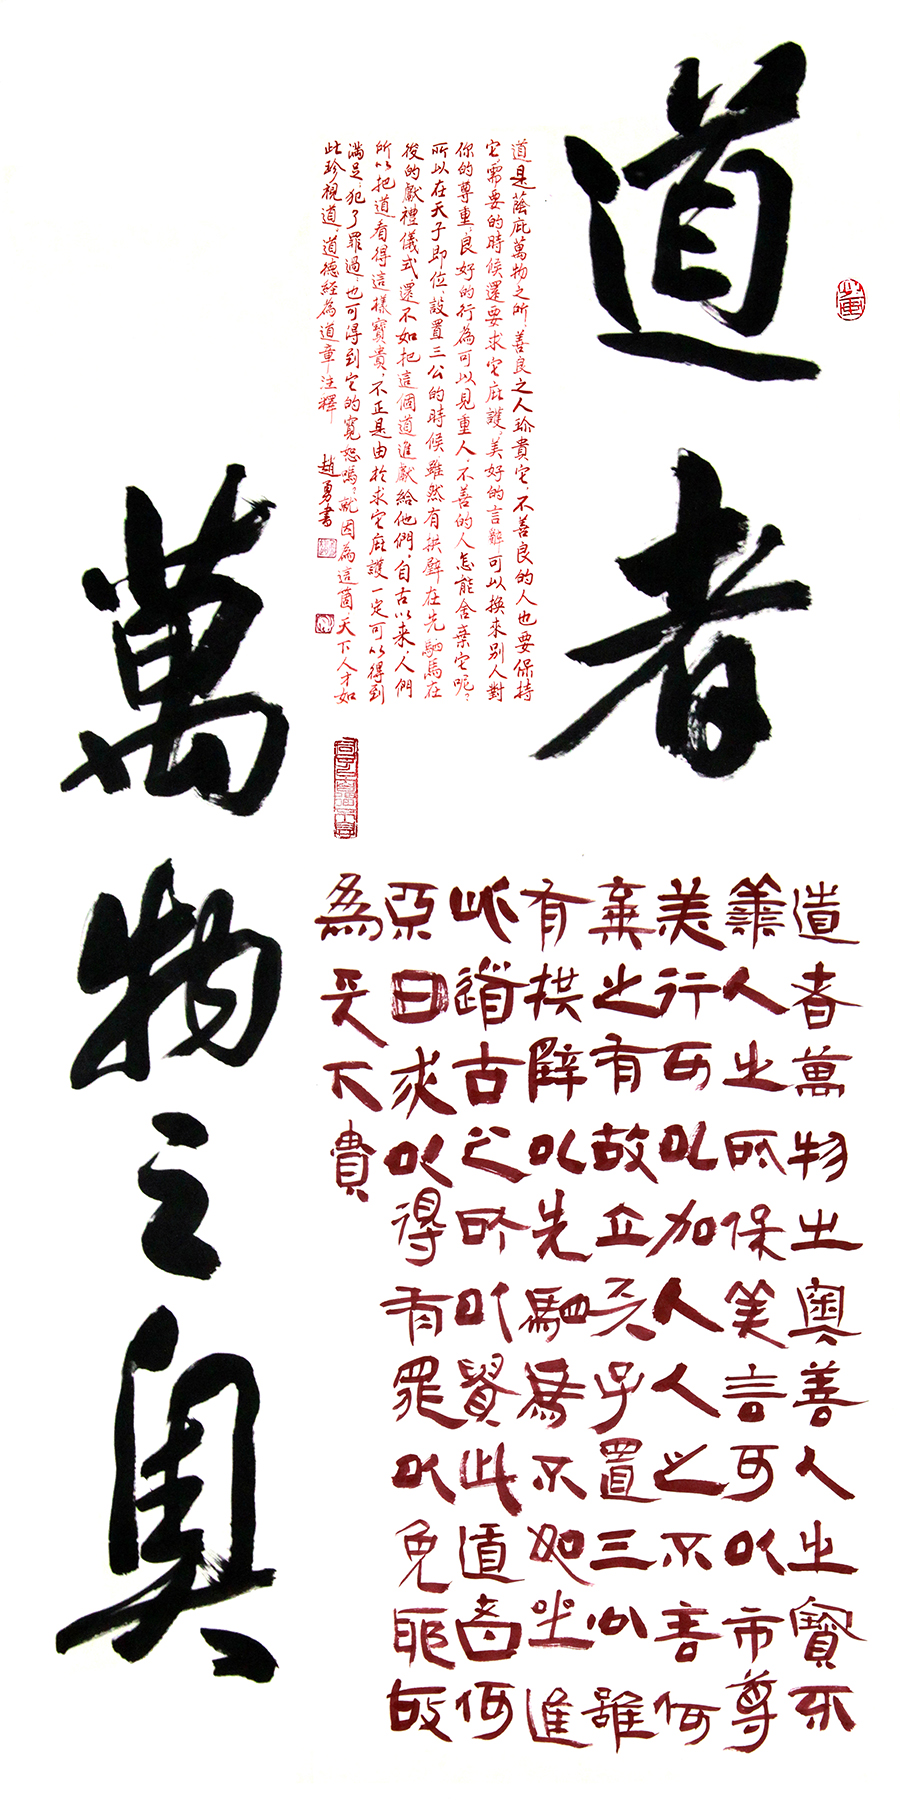 道者
萬物之奧
道是蔭庇萬物之所，善良之人珍貴它，不善良的人也要保持
它，需要的時候還要求它庇護，美好的言辭可以換來別人對
你的尊重，良好的行為可以見重人，不善的人怎能舍棄它呢？
所以在天子即位，設置三公的時候，雖然有拱璧在先駟馬在
後的獻禮儀式，還不如把這個道進獻給他們，自古以來，人們
所以把道看得這樣寶貴，不正是由於求它庇護一定可以得到
滿足，犯了罪過，也可得到它的寬恕嗎？就因為這箇，天下人才如
此珍視道，道德經為道章注釋 趙勇書
道者萬物之奧善人之寶不
善人之所保美言可以市尊
美行可以加人人之不善何
棄之有故立天子置三公雖
有拱璧以先駟馬不如坐進
此道古之所以貴此道者何
曰求以得有罪以免耶故
為天下貴